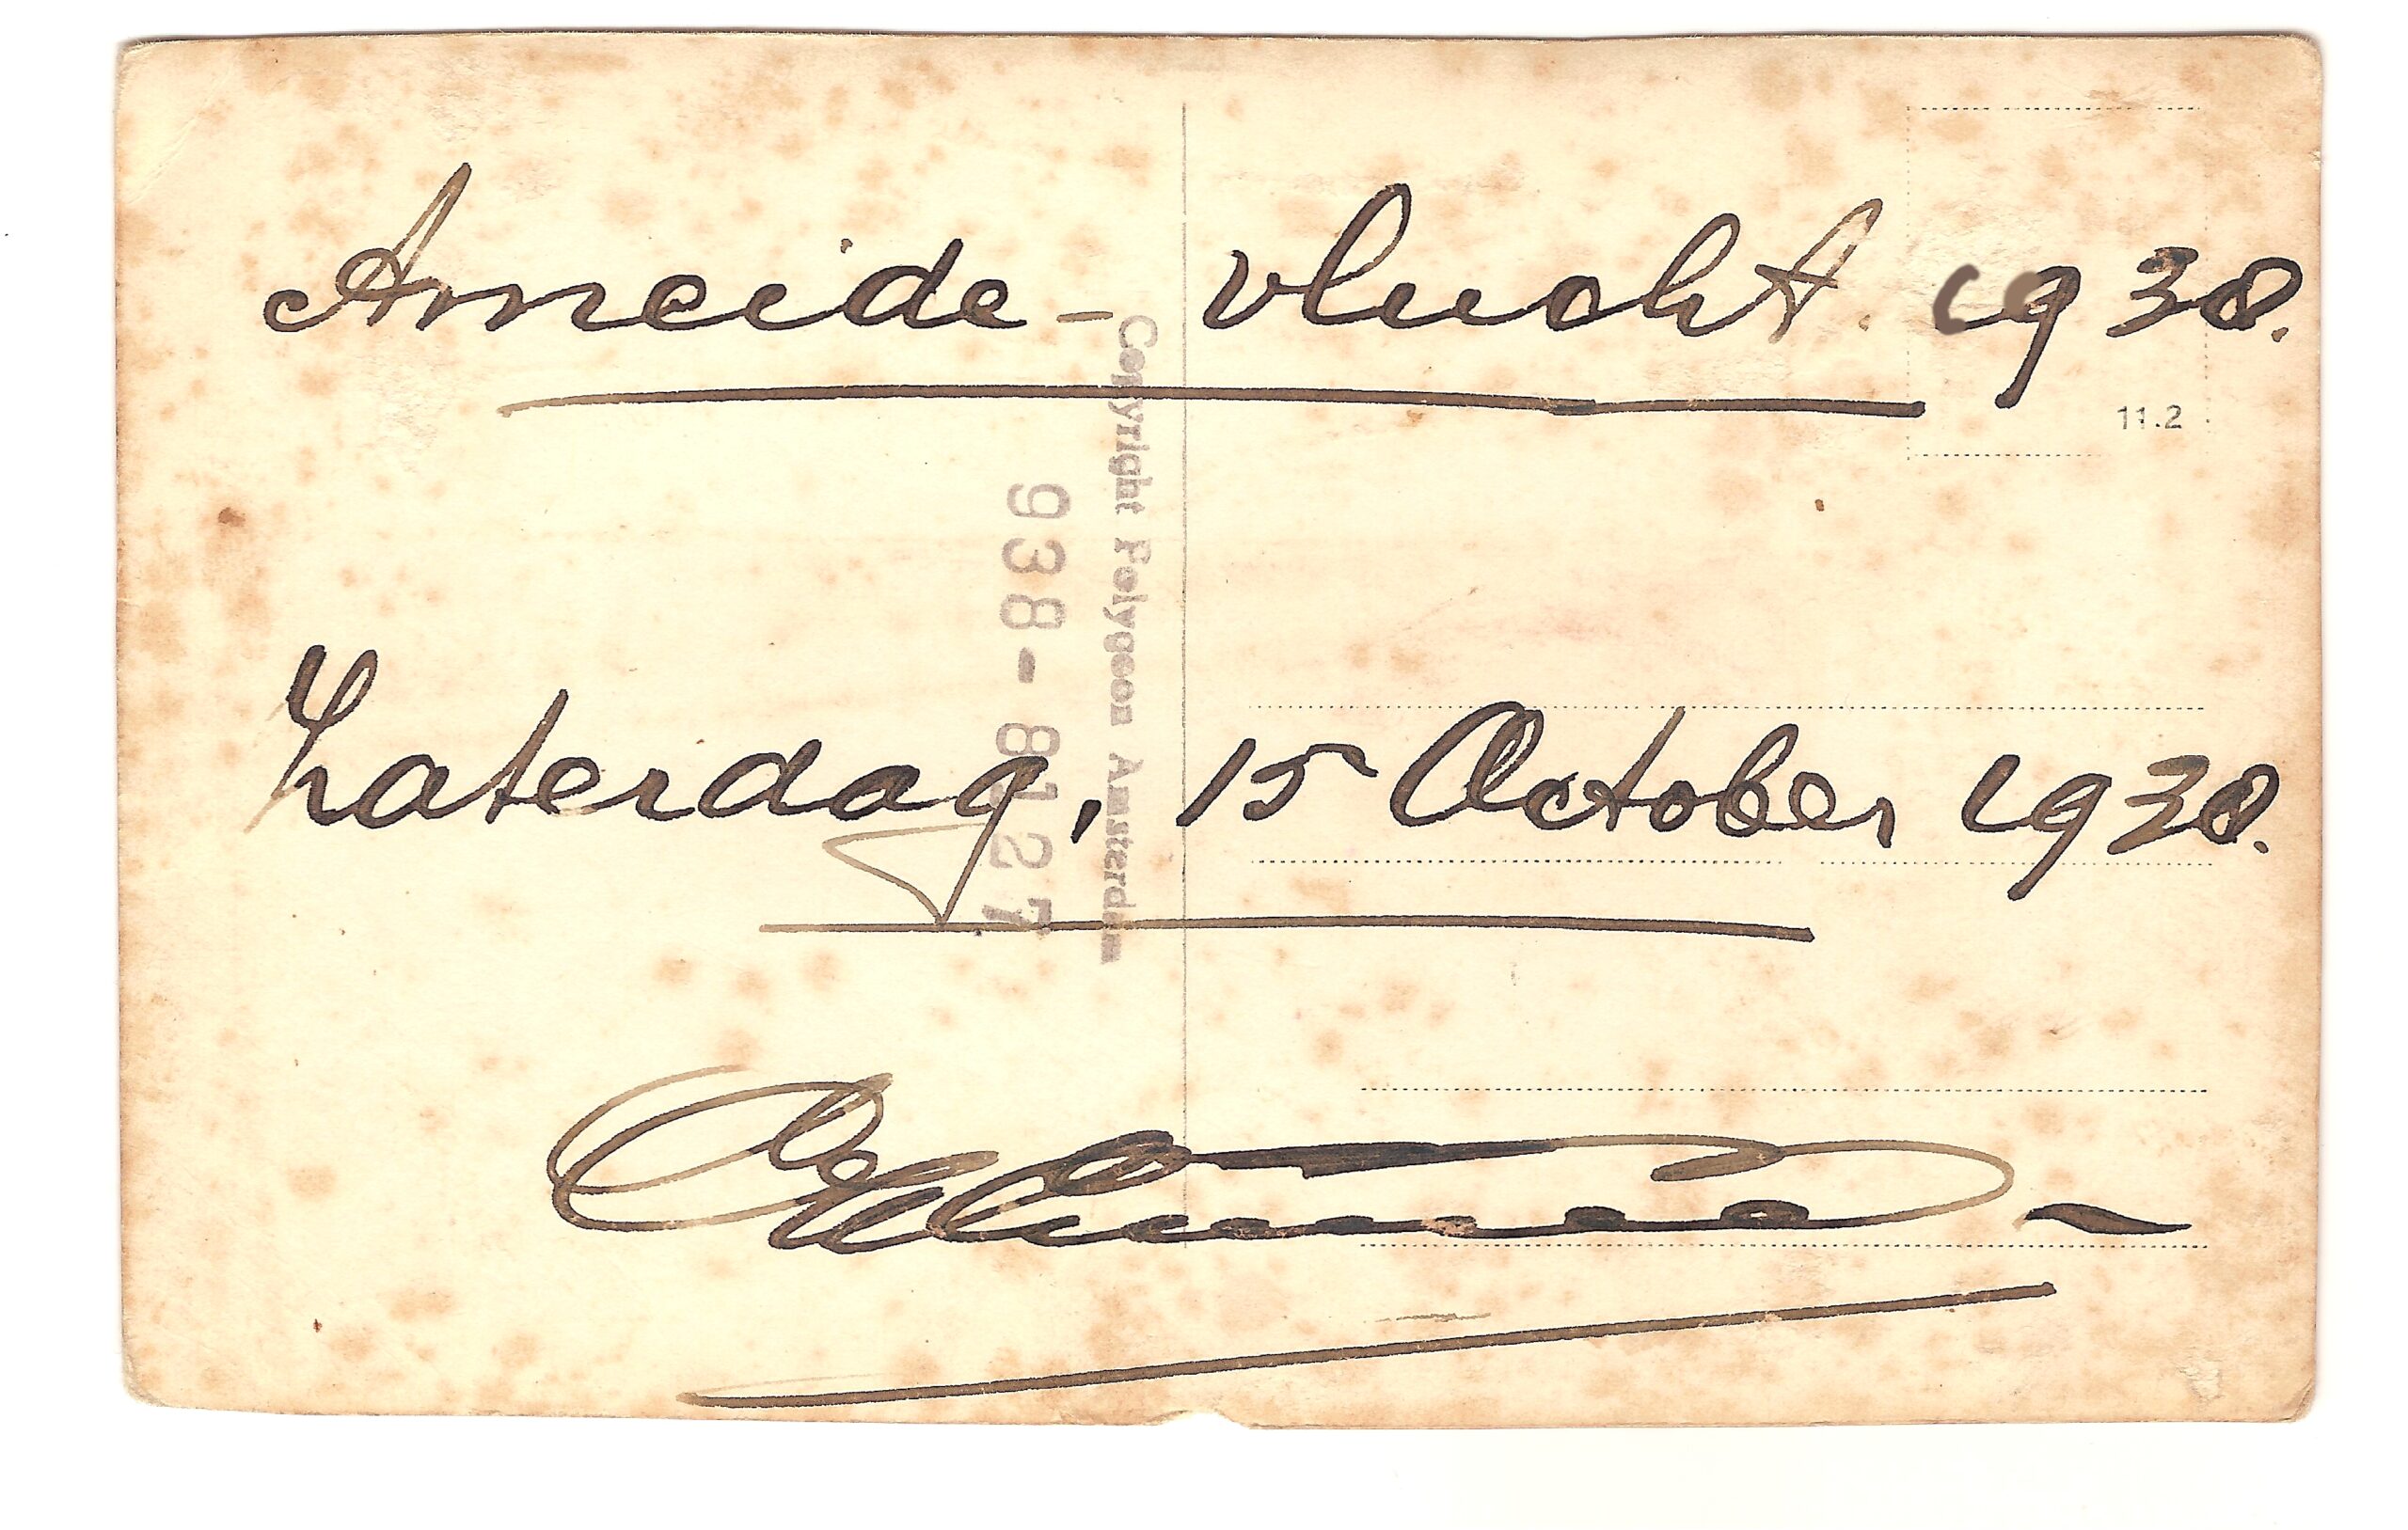 Ameide - vlucht. 1938.
11.2
Copyright Polygoon Amsterdam
938-8127
Zaterdag, 15 October 1938.